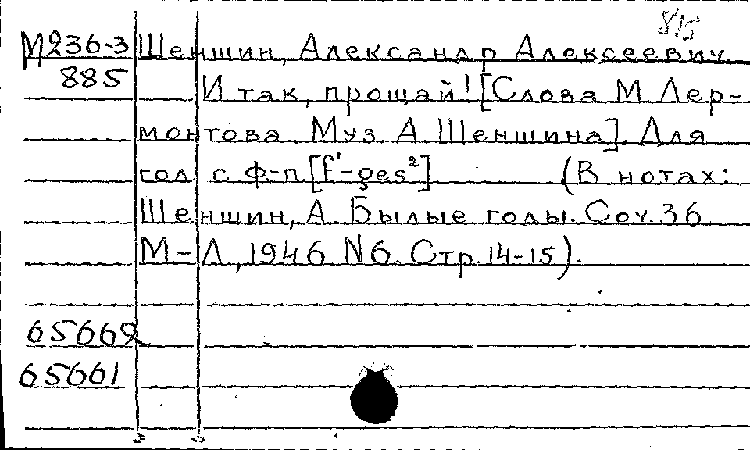 М236-3 Шеншин, Александр Алексеевич
885 Итак, прощай! [Слова М Лер-
монтова. Муз А Шеншина]. Для
гол с ф-п [f'-ges²] (В нотах:
Шеншин, А. Былые годы. Соч. 36
М-Л, 1946 N6. Стр. 14-15).
65669
65661